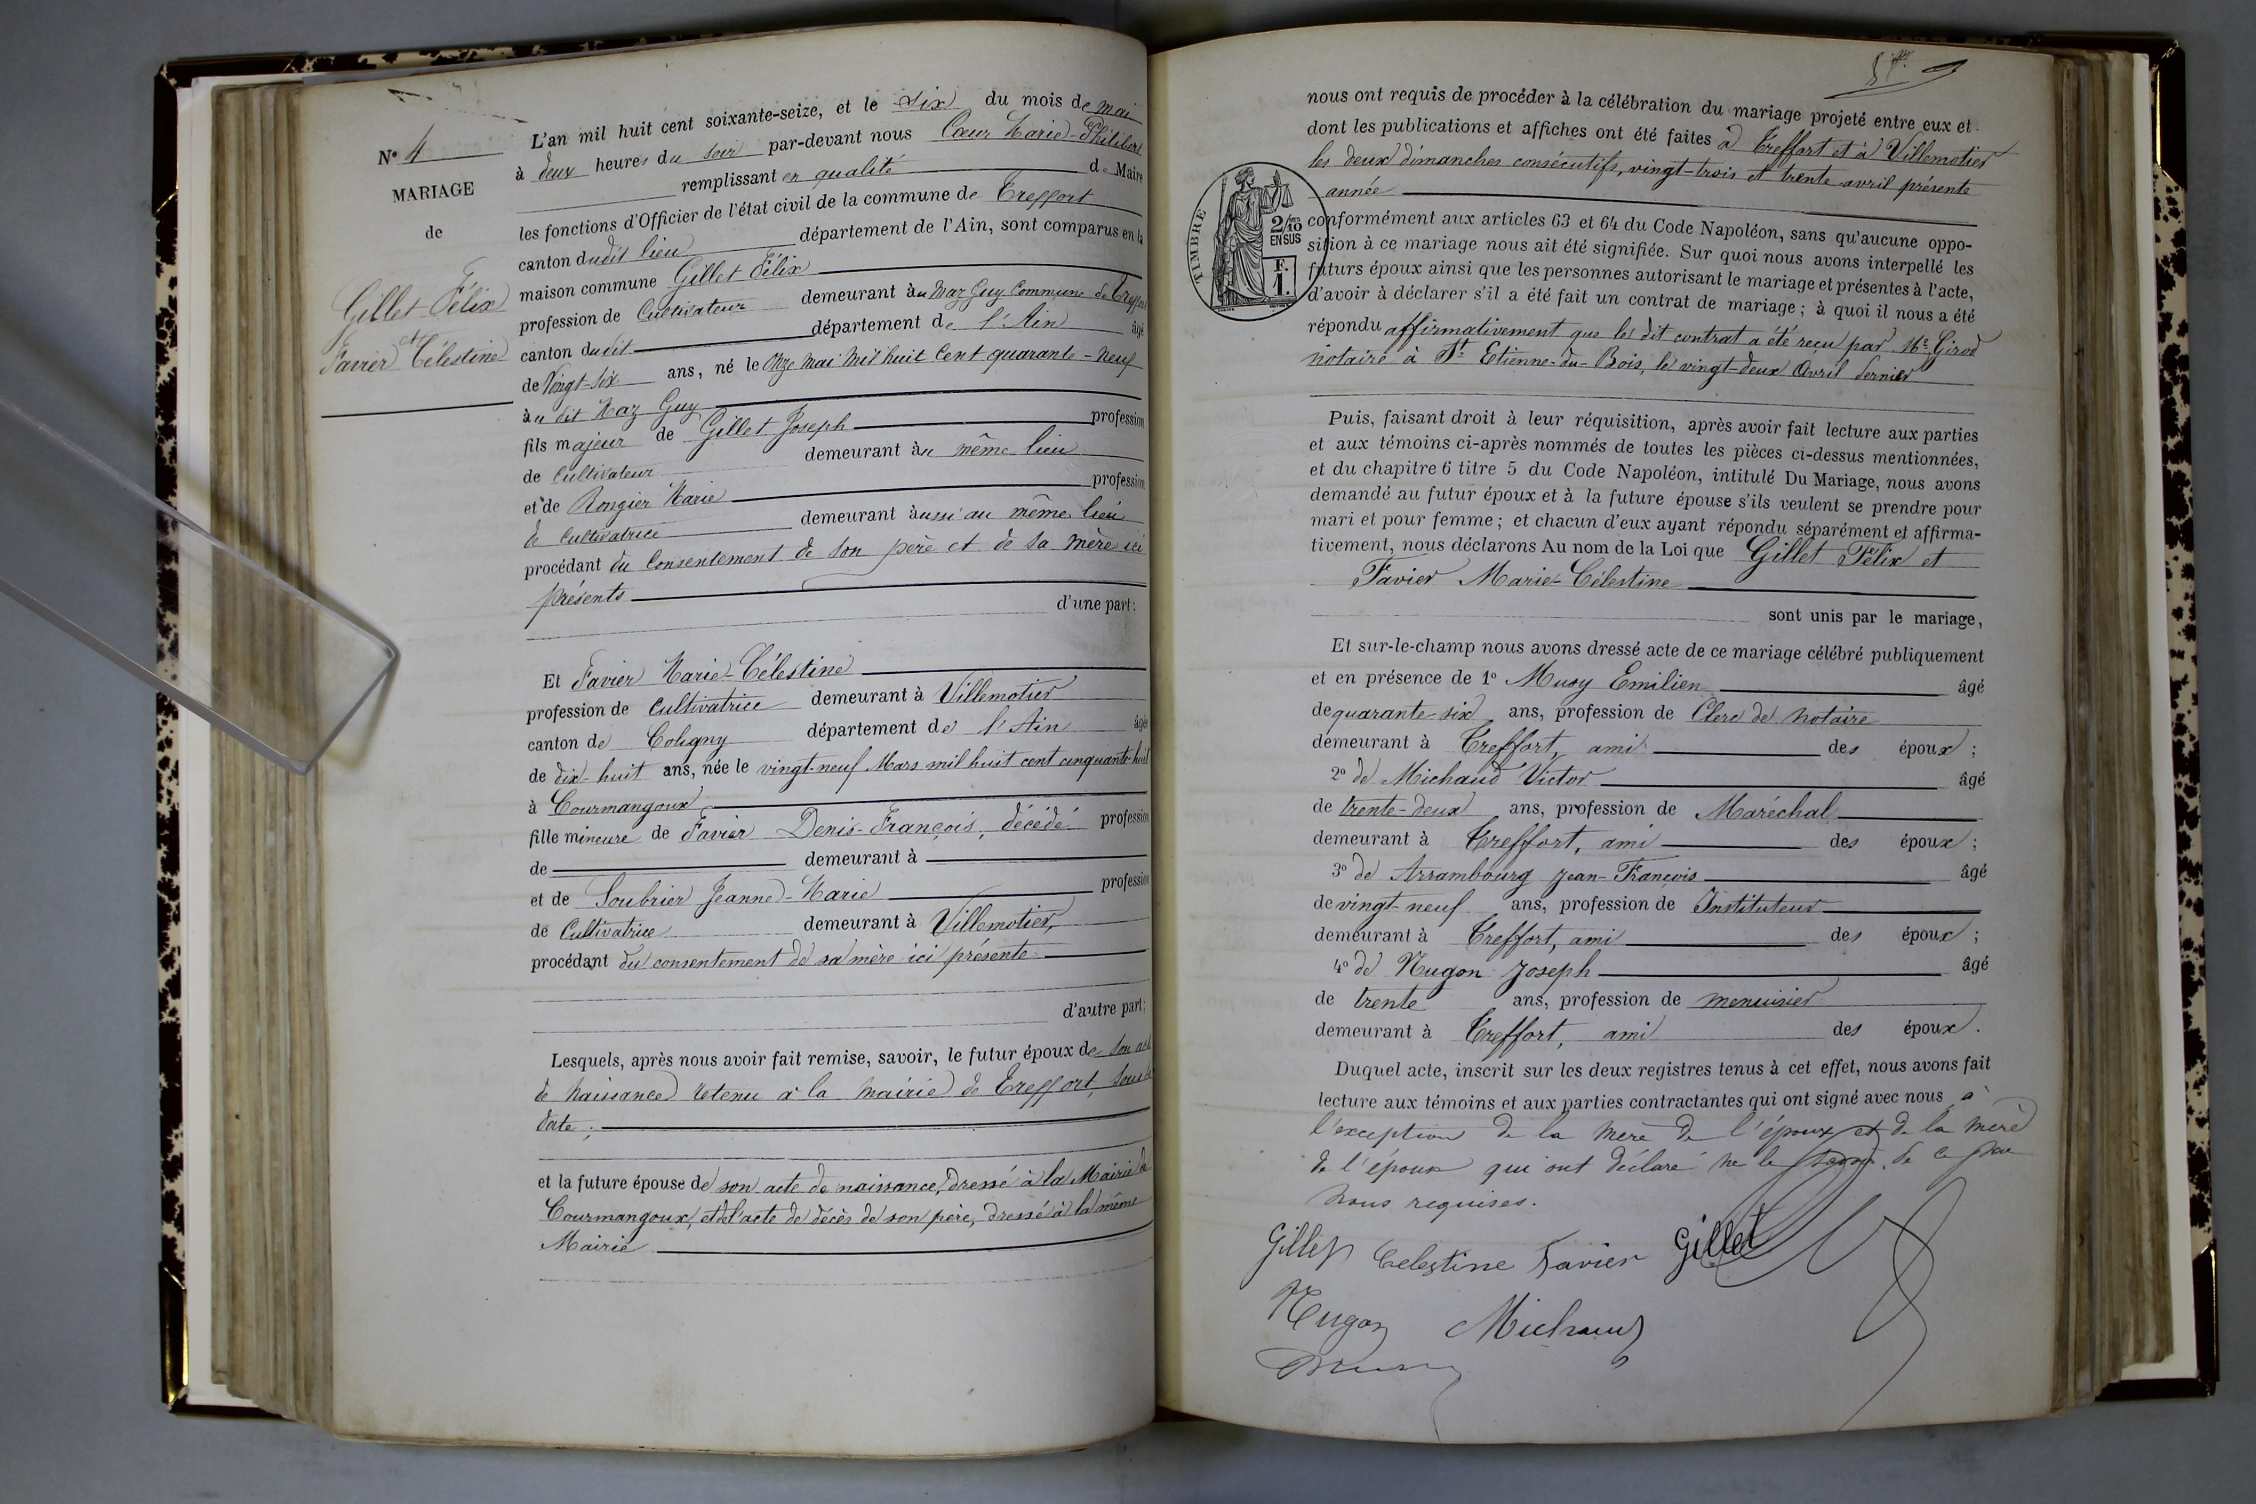 Nº 4
MARIAGE
de
Gillet Félix
et
Favier Célestine
L'an mil huit cent soixante-seize, et le six du mois de mai
à deux heures du soir par-devant nous Cœur Marie-Philibert
remplissant en qualité de Maire
les fonctions d'Officier de l'état civil de la commune de Treffort
canton dudit lieu département de l'Ain, sont comparus en la
maison commune Gillet Félix
profession de Cultivateur demeurant au Maz Guy Commune de Treffort
canton dudit département de l'Ain âgé
de Vingt-six ans, né le Onze mai mil huit Cent quarante-neuf
au dit Maz Guy
fils majeur de Gillet Joseph profession
de Cultivateur demeurant au même lieu
et de Rongier Marie profession
de Cultivatrice demeurant aussi au même lieu
procédant du Consentement de son père et de sa mère ici
présents
d'une part:
Et Favier Marie-Célestine
profession de cultivatrice demeurant à Villemotier
canton de Coligny département de l'Ain âgée
de dix-huit ans, née le vingt-neuf Mars mil huit cent cinquante-huit
à Courmangoux
fille mineure de Favier Denis-François, décédé profession
de demeurant à
et de Soubrier Jeanne-Marie profession
de Cultivatrice demeurant à Villemotier,
procédant du consentement de sa mère ici présente
d'autre part;
Lesquels, après nous avoir fait remise, savoir, le futur époux de son acte
de Naissance retenu à la mairie de Treffort, sous sa
date;
et la future épouse de son acte de naissance, dressé à la Mairie de
Courmangoux, et de l'acte de décès de son père, dressé à la même
Mairie
nous ont requis de procéder à la célébration du mariage projeté entre eux et
dont les publications et affiches ont été faites à Treffort et à Villemotier
les deux dimanches consécutifs, vingt-trois et trente avril présente
année
TIMBRE
2/10
EN SUS
F.
1.
conformément aux articles 63 et 64 du Code Napoléon, sans qu'aucune oppo-
sition à ce mariage nous ait été signifiée. Sur quoi nous avons interpellé les
futurs époux ainsi que les personnes autorisant le mariage et présentes à l'acte,
d'avoir à déclarer s'il a été fait un contrat de mariage; à quoi il nous a été
répondu affirmativement que le dit contrat a été reçu par Me Girod
notaire à St Etienne-du-Bois, le vingt-deux Avril dernier
Puis, faisant droit à leur réquisition, après avoir fait lecture aux parties
et aux témoins ci-après nommés de toutes les pièces ci-dessus mentionnées,
et du chapitre 6 titre 5 du Code Napoléon, intitulé Du Mariage, nous avons
demandé au futur époux et à la future épouse s'ils veulent se prendre pour
mari et pour femme; et chacun d'eux ayant répondu séparément et affirma-
tivement, nous déclarons Au nom de la Loi que Gillet Félix et
Favier Marie-Célestine
sont unis par le mariage,
Et sur-le-champ nous avons dressé acte de ce mariage célébré publiquement
et en présence de 1º Musy Emilien âgé
de quarante-six ans, profession de Clerc de notaire
demeurant à Treffort, ami des époux;
2º de Michaud Victor âgé
de trente-deux ans, profession de Maréchal
demeurant à Treffort, ami des époux;
3º de Arrambourg Jean-François âgé
de vingt-neuf ans, profession de Instituteur
demeurant à Treffort, ami des époux;
4º de Nugon Joseph âgé
de trente ans, profession de menuisier
demeurant à Treffort, ami des époux.
Duquel acte, inscrit sur les deux registres tenus à cet effet, nous avons fait
lecture aux témoins et aux parties contractantes qui ont signé avec nous à
l'exception de la mère de l'époux et de la mère
de l'épouse qui ont déclaré ne le savoir de ce par
nous requises.
Gillet Celestine Favier Gillet
Nugon Michaud